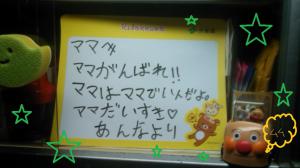 ママへ
ママがんばれ!!
ママはママでいんだよ。
ママだいすき♡
あんなより